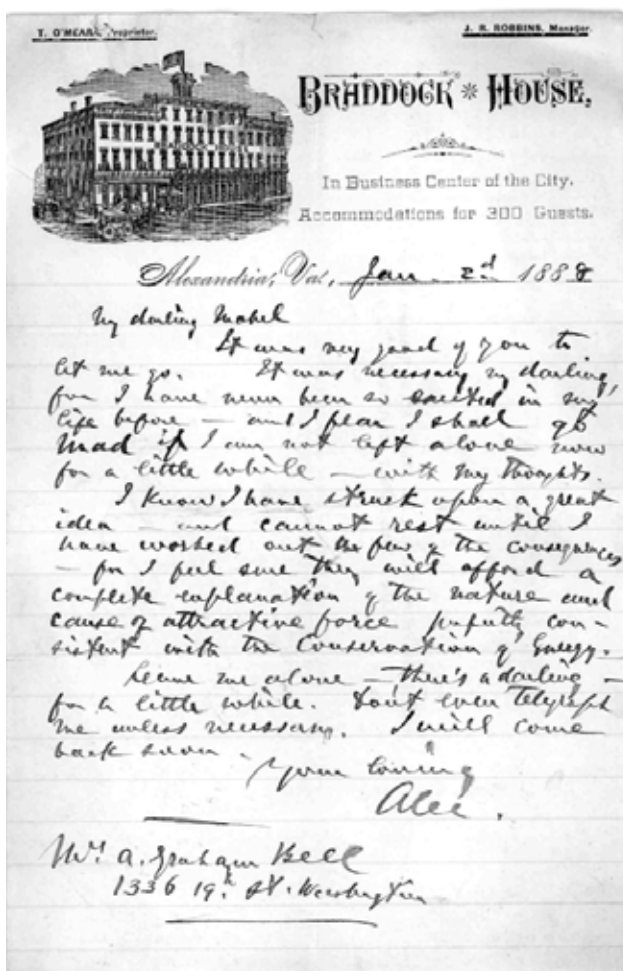 T. O'MEARA, Proprietor.
J. R. ROBBINS, Manager.
BRADDOCK * HOUSE,
In Business Center of the City.
Accommodations for 300 Guests.
Alexandria, Va., Jan. 2nd 1888
My darling Mabel
It was very good of you to
let me go. It was necessary my darling,
for I have never been so excited in my
life before — and I fear I shall go
mad if I am not left alone now
for a little while — with my thoughts.
I know I have struck upon a great
idea — and cannot rest until I
have worked out the few of the consequences
— for I feel sure they will afford a
complete explanation of the nature and
cause of attractive force con-
sistent with the Conservation of Energy.
Leave me alone — there's a darling —
for a little while. Don't even telegraph
me unless necessary. I will come
back soon.
Your loving
Alec.
Mrs. A. Graham Bell
1336 19th St. Washington